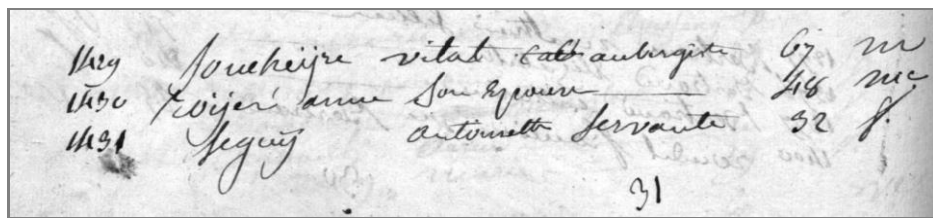 1429 Soucheijre vital aubergiste 67 m
1430 Roijeré anne Son Epouse 48 me
1431 Seguij antoinette Servante 32 f.
31